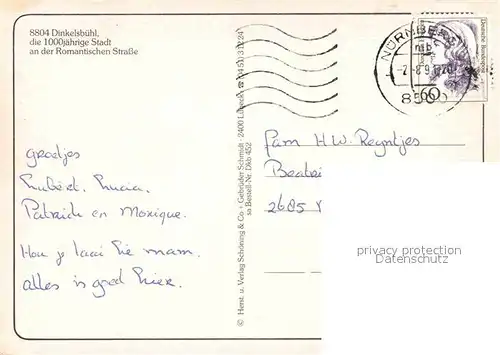 8804 Dinkelsbühl,
die 1000jährige Stadt
an der Romantischen Straße
groetjes
Lubért, Lucia,
Patrick en Monique.
Hou je taai hè mam.
alles is goed hier.
© Herst. u. Verlag Schöning & Co + Gebrüder Schmidt · 2400 Lübeck · ☎ (04 51) 3 12 24
sa Bestell-Nr. Dkb 452
NÜRNBERG
mb
8500
60
Deutsche Bundespost
fam H.W. Reyntjes
Beatri
2685
privacy protection
Datenschutz